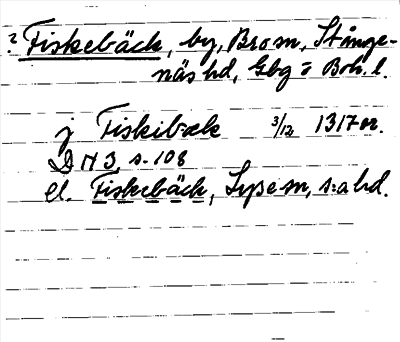 ? Fiskebäck, by, Bro sn, Stånge-
näs hd, Gbg o Boh. l.
j Fiskibæk 3/12 1317 or.
DN 3 s. 108
el. Fiskebäck, Lyse sn, s:a hd.